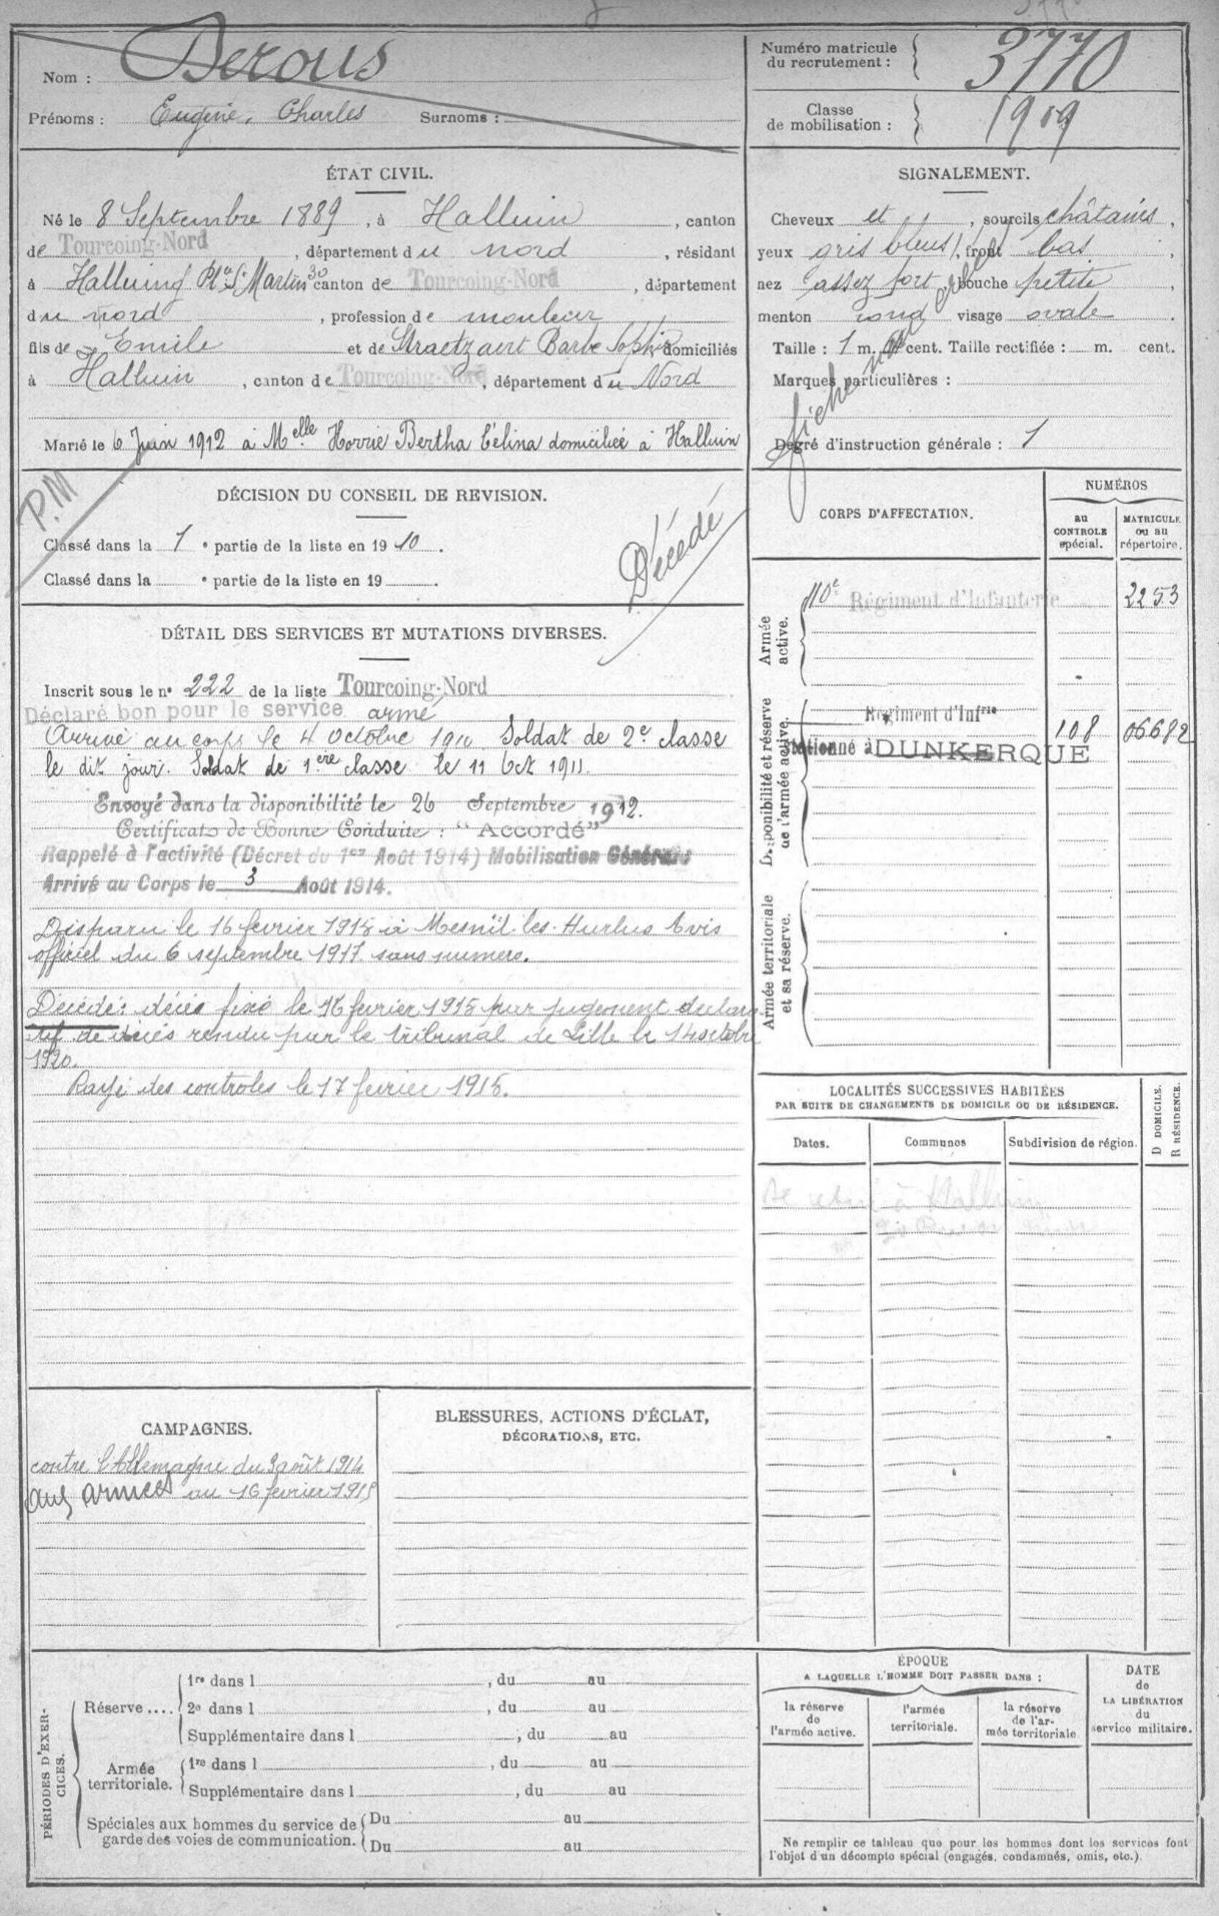 Nom : Derous
Prénoms : Eugène, Charles Surnoms :
Numéro matricule
du recrutement : 3770
Classe
de mobilisation : 1909
ÉTAT CIVIL.
Né le 8 Septembre 1889, à Halluin, canton
de Tourcoing-Nord, département du nord, résidant
à Halluin, Pl. St Martin 30 canton de Tourcoing-Nord, département
du nord, profession de mouleur
fils de Emile et de Straetzaert Barbe Sophie domiciliés
à Halluin, canton de Tourcoing-Nord, département du Nord
Marié le 6 Juin 1912 à Melle Horrie Bertha Célina domiciliée à Halluin
SIGNALEMENT.
Cheveux et, sourcils châtains,
yeux gris bleus, front bas,
nez assez fort, bouche petite,
menton rond visage ovale.
Taille : 1 m. cent. Taille rectifiée : m. cent.
Marques particulières :
Degré d'instruction générale : 1
fiche
P.M
DÉCISION DU CONSEIL DE REVISION.
Classé dans la 1e partie de la liste en 1910.
Classé dans la e partie de la liste en 19 .
Décédé
DÉTAIL DES SERVICES ET MUTATIONS DIVERSES.
Inscrit sous le no 222 de la liste Tourcoing-Nord
Déclaré bon pour le service armé
Arrivé au corps le 4 octobre 1910 Soldat de 2e classe
le dit jour. Soldat de 1ère classe le 11 Oct 1911.
Envoyé dans la disponibilité le 26 Septembre 1912.
Certificat de Bonne Conduite : "Accordé"
Rappelé à l'activité (Décret du 1er Août 1914) Mobilisation Générale
Arrivé au Corps le 3 Août 1914.
Disparu le 16 fevrier 1915 à Mesnil-les-Hurlus Avis
officiel du 6 septembre 1917 sans numero.
Décédé : décès fixé le 16 fevrier 1915 par jugement declara
tif de décès rendu par le tribunal de Lille le 14 octobre
1920.
Rayé des controles le 17 fevrier 1915.
CORPS D'AFFECTATION.
NUMÉROS
au
CONTROLE
spécial.
MATRICULE
ou au
répertoire.
Armée
active.
110e Régiment d'Infanterie 2253
Disponibilité et réserve
de l'armée active.
Régiment d'Infrie 108 06682
Stationné à DUNKERQUE
Armée territoriale
et sa réserve.
LOCALITÉS SUCCESSIVES HABITÉES
PAR SUITE DE CHANGEMENTS DE DOMICILE OU DE RÉSIDENCE.
Dates. Communes Subdivision de région.
D DOMICILE.
R RÉSIDENCE.
à Halluin
CAMPAGNES.
contre l'Allemagne du 3 août 1914
aux armées au 16 fevrier 1915
BLESSURES, ACTIONS D'ÉCLAT,
DÉCORATIONS, ETC.
PÉRIODES D'EXER-
CICES.
Réserve .... 1re dans l , du au
2e dans l , du au
Supplémentaire dans l , du au
Armée
territoriale. 1re dans l , du au
Supplémentaire dans l , du au
Spéciales aux hommes du service de
garde des voies de communication. Du au
Du au
ÉPOQUE
A LAQUELLE L'HOMME DOIT PASSER DANS :
la réserve
de
l'armée active.
l'armée
territoriale.
la réserve
de l'ar-
mée territoriale.
DATE
de
LA LIBÉRATION
du
service militaire.
Ne remplir ce tableau que pour les hommes dont les services font
l'objet d'un décompte spécial (engagés, condamnés, omis, etc.).